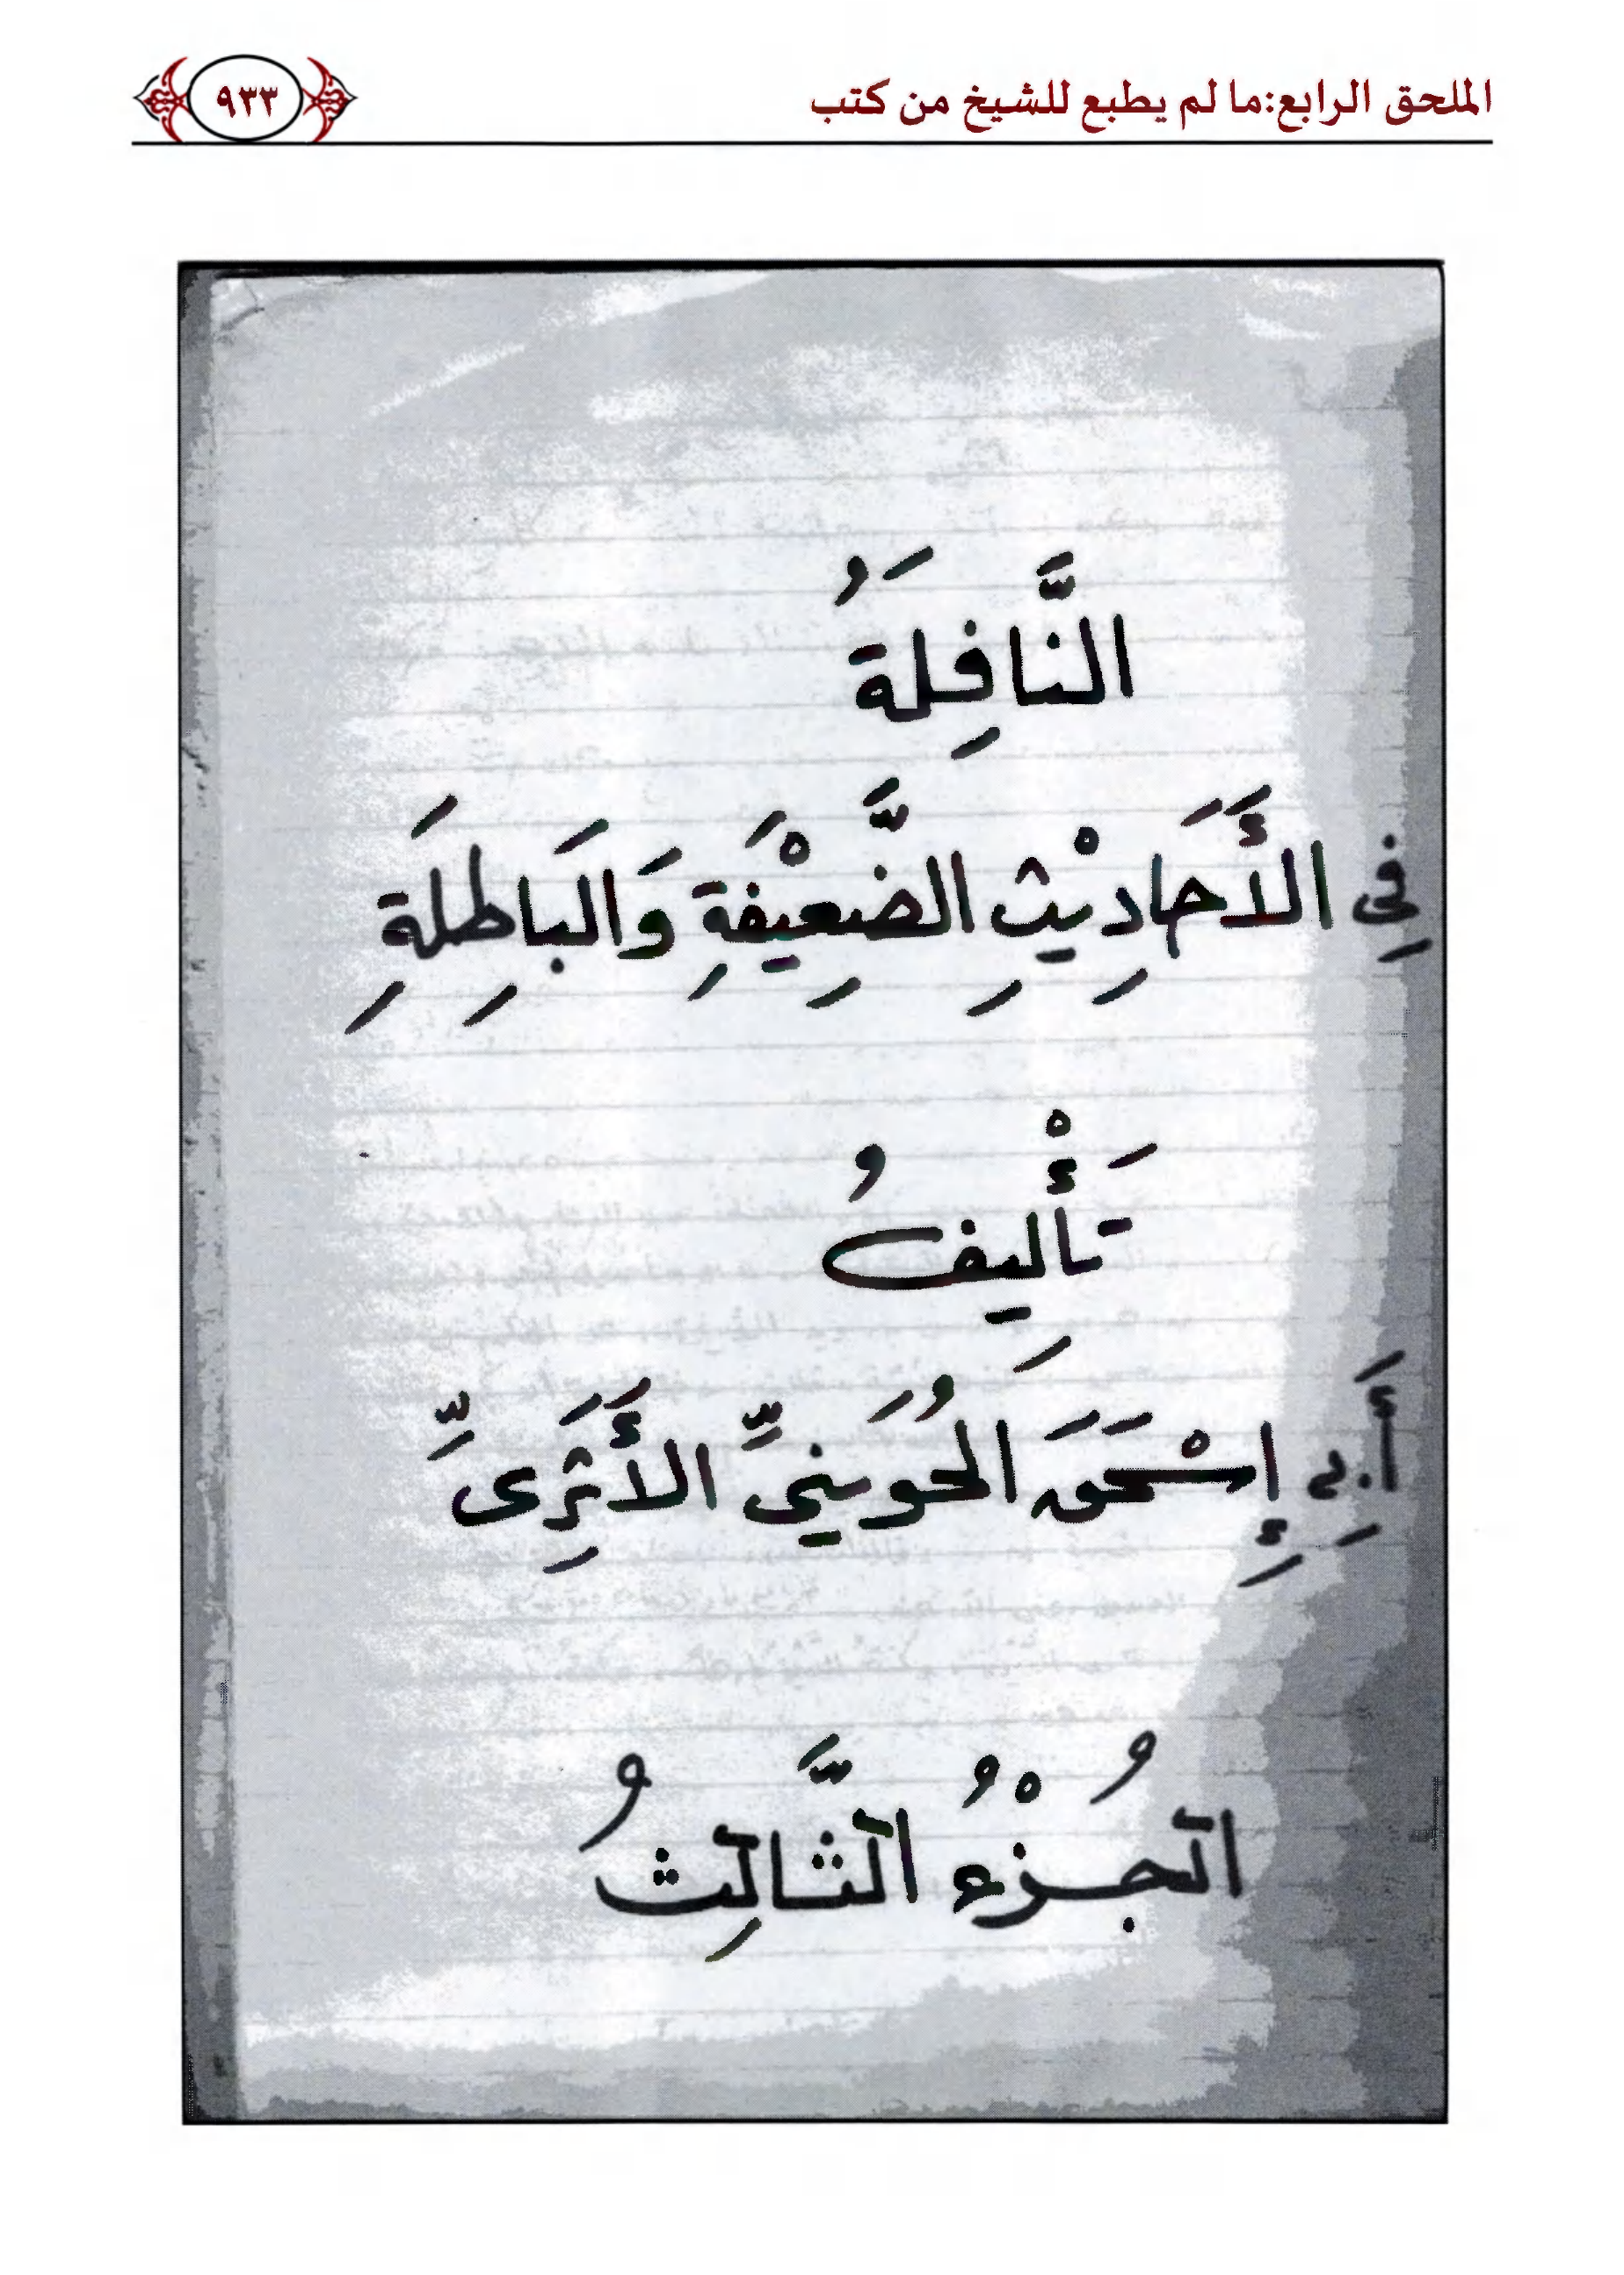 الملحق الرابع:ما لم يطبع للشيخ من كتب
٩٣٣
النَّافِلَةُ
فِى الأَحَادِيْثِ الضَّعِيْفَةِ وَالبَاطِلَةِ
تَأْلِيفُ
أَبِى إِسْحَقَ الحُوَينىِّ الأَثَرِىِّ
الجُزْءُ الثَّالِثُ